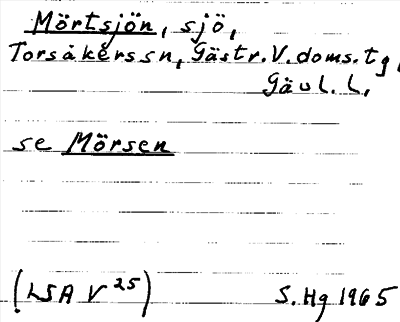 Mörtsjön, sjö,
Torsåkerssn, Gästr. V. doms. tg,
Gävl. L.
se Mörsen
(LSA V 25)
S. Hg 1965